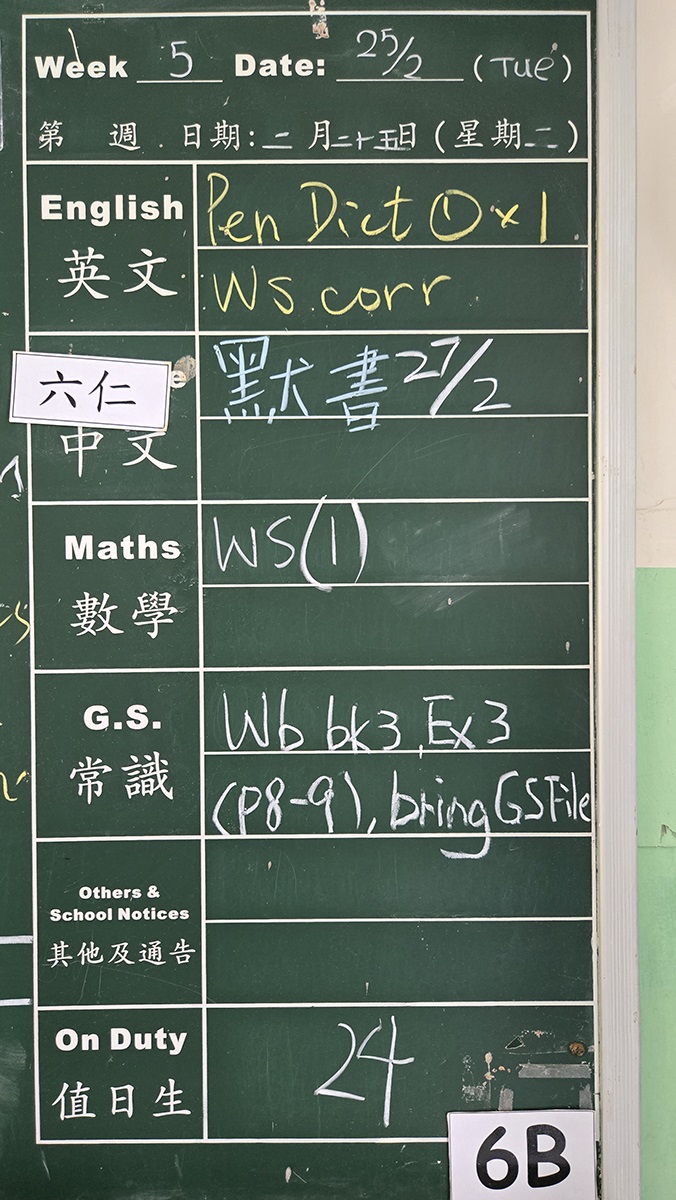 Week 5 Date: 25/2 (Tue)
第 週 日期:二月二十五日(星期二)
English Pen Dict ① x 1
英文 WS corr
六仁 e 默書 27/2
中文
Maths WS(1)
數學
G.S. Wb bk3, Ex 3
常識 (P8-9), bring GS File
Others &
School Notices
其他及通告
On Duty 24
值日生
6B